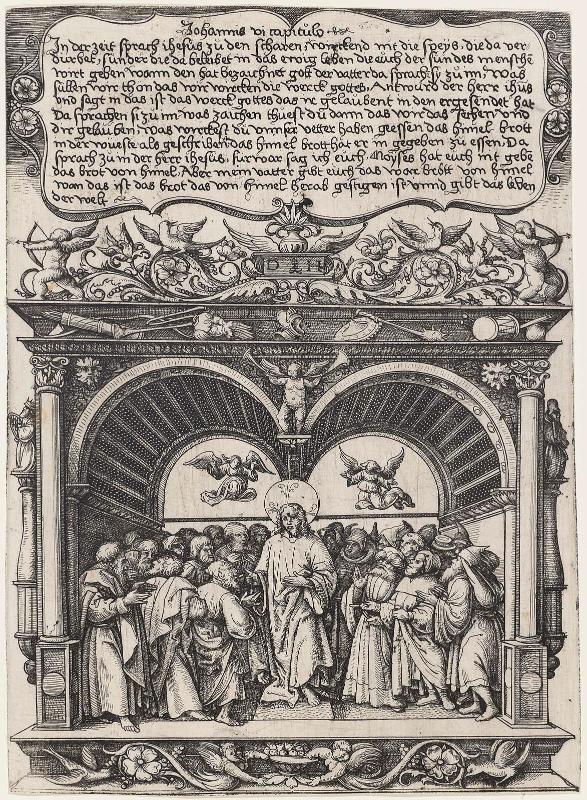 Johannis vi capitulo
In der zeit sprach ihesus zu den scharen, wirckend nit die speys, die da ver
durbet, sunder die da beleibet in das ewig leben die euch der sun des mensche
wirt geben wann den hat bezaichnet gott der vatter da sprach sy zu im, Was
sullen wir thon das wir wircken die werck gottes, Antwurd der herr ihus
und sagt in das ist das werck gottes das ir gelaubent in den er gesendet hat
Da sprachen si zu im, was zaichen thuest du dann das wir das sehen und
dir gelauben, was wirckest du unnser vetter haben geessen das himel brott
in der wueste als geschriben das himel brott hat er in gegeben zu essen, Da
sprach zu in der herr ihesus, furwar sag ich euch, Moyses hat euch nit gebe
das brot von himel, Aber mein vatter gibt euch das war brott von himel
wan das ist das brot das von himel herab gestigen ist unnd gibt das leben
der welt